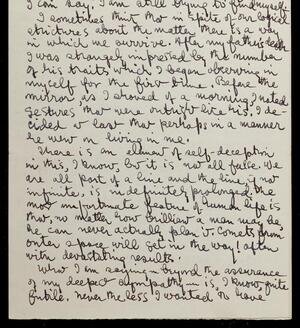 I can say. I am still trying to find myself.
I sometimes think that in spite of our logical
strictures about the matter there is a way
in which we survive. After my father's death
I was strangely impressed by the number
of his traits which I began observing in
myself for the first time. Before the
mirror, as I shaved of a morning, I noted
gestures that were entirely like his. I de-
cided at last that perhaps in a manner
he went on living in me.
There is an element of self-deception
in this, I know, but it is not all false. We
are all part of a line and the line is not
infinite, is indefinitely prolonged. The
most unfortunate feature of human life is
that, no matter how brilliant a man may be,
he can never actually plan it. Comets from
outer space will get in the way! often
with devastating results.
What I am saying – beyond the assurance
of my deepest sympathy – is, I know, quite
futile. Nevertheless I wanted to have